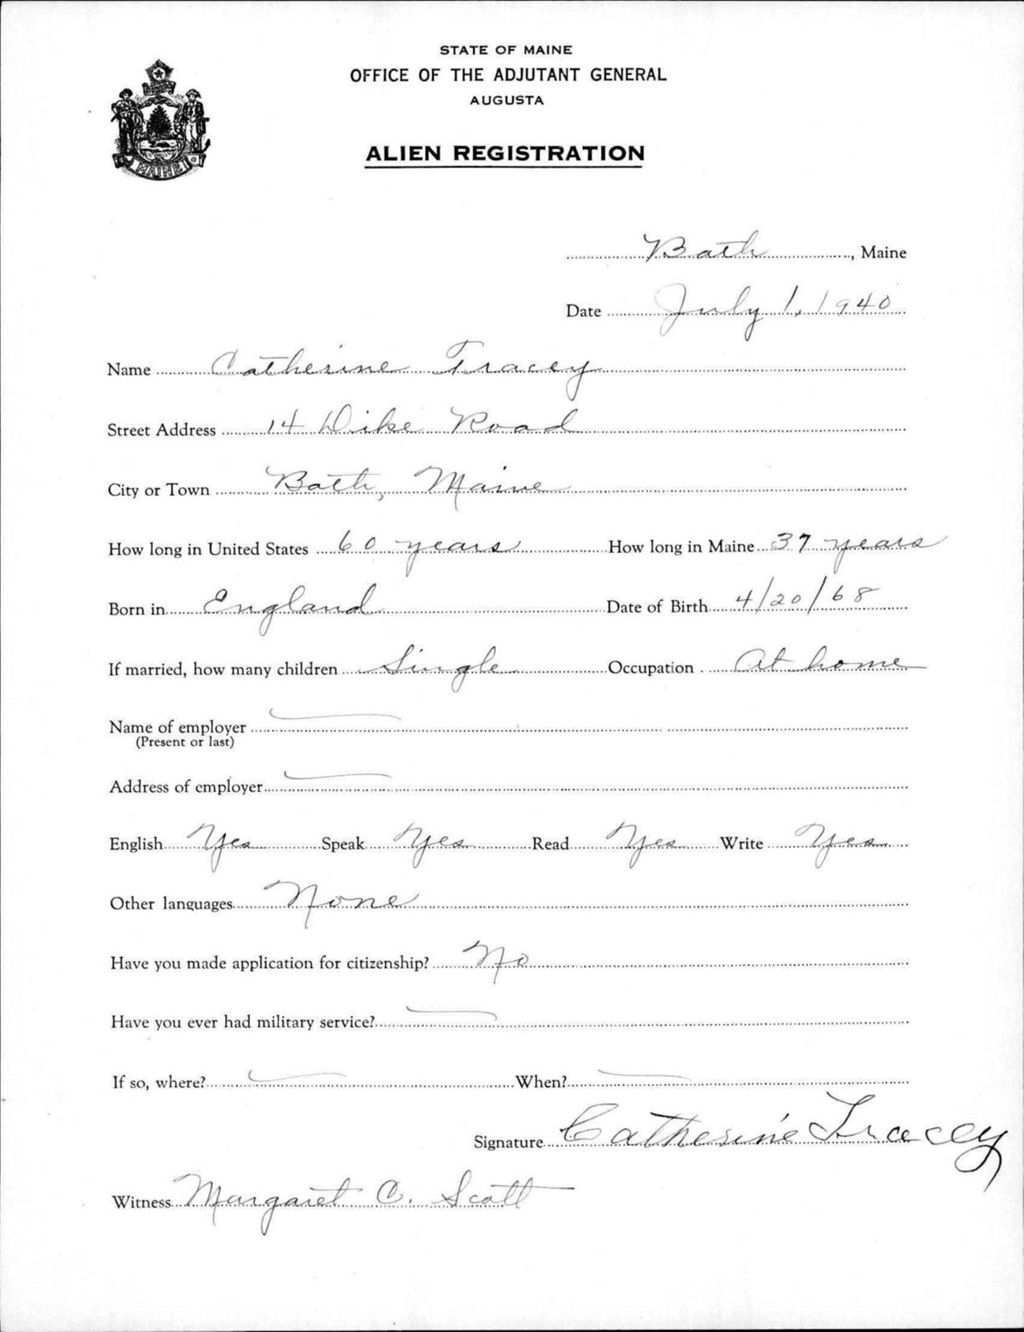 STATE OF MAINE
OFFICE OF THE ADJUTANT GENERAL
AUGUSTA
ALIEN REGISTRATION
MAINE
Bath, Maine
Date July 1, 1940
Name Catherine Tracey
Street Address 14 Dike Road
City or Town Bath, Maine
How long in United States 60 years How long in Maine 37 years
Born in England Date of Birth 4/20/68
If married, how many children Single Occupation At home
Name of employer
(Present or last)
Address of employer
English Yes Speak Yes Read Yes Write Yes
Other languages None
Have you made application for citizenship? No
Have you ever had military service?
If so, where? When?
Signature Catherine Tracey
Witness Margaret C. Scott